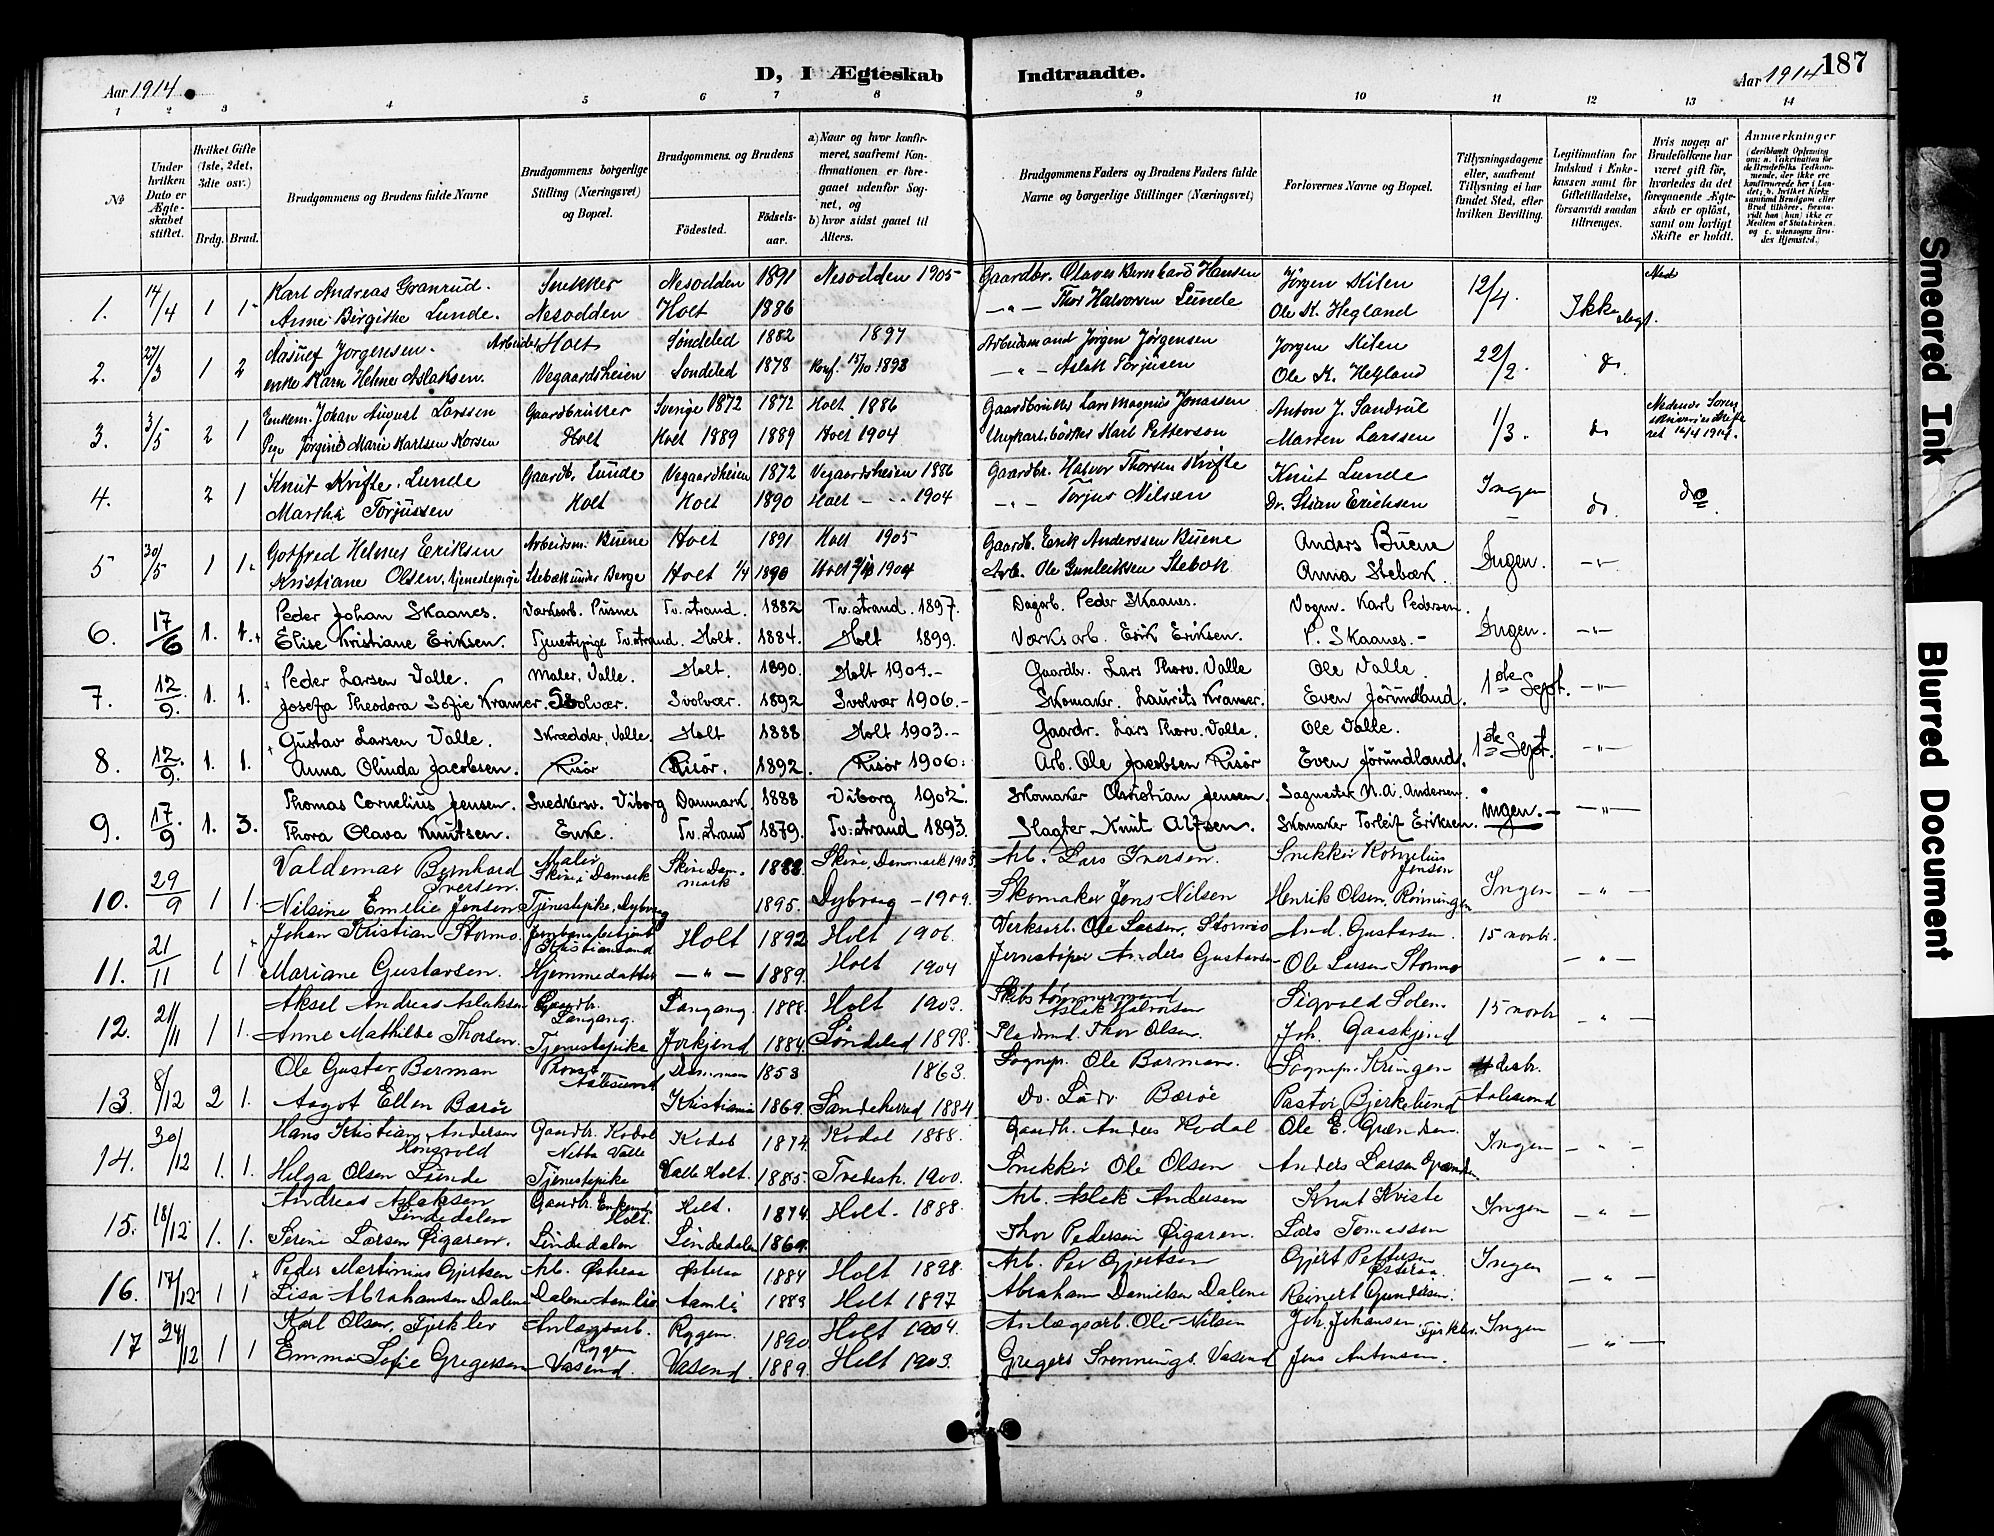 187
D, I Ægteskab Indtraadte.
Aar 1914 Aar 1914
1 2 3 4 5 6 7 8 9 10 11 12 13 14
No
Under hvilken Dato er Ægteskabet stiftet.
Hvilket Gifte (1ste, 2det, 3die osv.)
Brdg. Brud.
Brudgommens og Brudens fulde Navne
Brudgommens borgerlige Stilling (Næringsvei) og Bopæl.
Brudgommens og Brudens
Fødested. Fødselsaar.
a) Naar og hvor konfirmeret, saafremt Konfirmationen er foregaaet udenfor Sognet, og
b) hvor sidst gaaet til Alters.
Brudgommens Faders og Brudens Faders fulde Navne og borgerlige Stillinger (Næringsvei)
Forlovernes Navne og Bopæl.
Tillysningsdagene eller, saafremt Tillysning ei har fundet Sted, efter hvilken Bevilling.
Legitimation for Indskud i Enkekassen samt for Giftetilladelse, forsaavidt saadan tiltrænges.
Hvis nogen af Brudefolkene har været gift før, hvorledes da det foregaaende Ægteskab er opløst, samt om lovligt Skifte er holdt.
Anmærkninger
1. 14/4 1 1 Karl Andreas Granrud. Snekker Nesodden 1891 Nesodden 1905 Gaardbr. Olaves Bernhard Hansen Jörgen Kilen 12/4. Ikke
Anne Birgithe Lunde. Nesodden Holt 1886 — " — Thor Halvorsen Lunde Ole K. Hegland
2. 27/3 1 2 Jorgensen. Arbeider Holt Søndeled 1882 1897 Arbeidsmand Jörgen Jørgensen Jorgen Kilen 22/2. do
enke Karn Helene Aslaksen. Vegaardsheien Sondeled 1878 Konf. 15/10 1893 — " — Aslak Torjusen Ole K. Hegland
3. 3/5 2 1 Enkem. Johan August Larssen Gaardbruker Sverige 1872 1872 Holt 1886 Gaardbruker Lars Magnus Jonassen Anton J. Sandvik 1/3. do
Pige Jørgine Marie Karlsen Korsen Holt Holt 1889 1889 Holt 1904 Ungkarl. bödker Karl Petterson Maren Larssen 16/4 1914.
4. 2 1 Knut Kvifte. Lunde Gaardb. Lunde Vegaardsheien 1872 Vegaardsheien 1886 Gaardbr. Halvor Thorsen Kvifte Knut Lunde Ingen do. do
Martha Torjussen Holt Holt 1890 Holt — 1904 — " — Torjus Nilssen Dr. Stian Erichsen
5 30/5 1 1 Gotfred Helmer Eriksen Arbeidsm. Buene Holt 1891 Holt 1905 Gaardb. Erik Anderssen Buene Anders Buene Ingen. — " —
Kristiane Olsen, tjenestepige Stebæk under Berge Holt 1/4 1890 Holt 1904 Arb. Ole Gunleiksen Stebæk Anna Stebæk.
6. 17/6 1. 1. Peder Johan Skaanes. Værksarb. Pusnes Tv.strand. 1882 Tv.strand. 1897. Dagarb. Peder Skaanes. Vogm. Karl Pedersen. Ingen. — " —
Elise Kristiane Eriksen. Tjenestepige Tv.strand. Holt. 1884. Holt 1899. Værksarb. Erik Eriksen. P. Skaanes. -
7. 12/9. 1. 1. Peder Larsen Valle. Maler, Valle. Holt. 1890. Holt 1904.- Gaardbr. Lars Thorv. Valle Ole Valle 1ste Sept. — " —
Josefa Theodora Sofie Kramer. Svolvær. Svolvær. 1892 Svolvær 1906.- Skomaker. Laurits Kramer. Even Jörundland.
8. 12/9. 1. 1. Gustav Larsen Valle. Skrædder, Valle. Holt 1888 Holt 1903.- Gaardr. Lars Thorv. Valle. Ole Valle. 1ste Sept. — " —
Anna Olinda Jacobsen. Risör Risör. 1892. Risör 1906. Arb. Ole Jacobsen Risör Even Jörundland.
9. 17/9 1. 3. Thomas Cornelius Jensen. Snedkersv. Viborg Danmark. 1888 Viborg 1902. Skomaker Christian Jensen. Sagmester N. A. Andersen. ingen. - — " —
Thora Olava Knutsen. Enke. Tv.strand 1879. Tv.strand 1893. Slagter Knut Alfsen. Skomaker Torleif Eriksen.
10. 29/9 1 1. Valdemar Bernhard Iversen. Maler Skive i Danmark Skive Danmark 1888. Skive, Danmark 1903. Arb. Lars Iversen. Snekker Kornelius Jensen Ingen — " —
Nilsine Emelie Jensen Tjenestepike, Dybvaag 1895. Dybvaag - 1909. Skomaker Jens Nilsen Henrik Olsen, Rønningen
11. 21/11 1 1 Johan Kristian Stormo. Jernbanebetjent Kristiansand Holt 1892 Holt 1906. Verksarb. Ole Larsen, Stormo And. Gustavsen. 15 novbr. — " —
Mariane Gustavsen. Hjemmedatter — " — 1889. Holt 1904 Jernstøper Anders Gustavsen Ole Larsen Stormo
12. 21/11 1 1. Aksel Andreas Aslaksen Gaardbr. Langang. Langang. 1888. Holt 1903. Skibstømmermand Aslak Halvorsen Sigvald Solen. 15 novbr — " —
Anne Mathilde Thorsen. Tjenestepike 1884. Søndeled 1898. Thor Olsen. Joh. Gaaskjend
13. 8/12 2 1. Ole Gustav Barman Provst Aalesund 1853 1863. Sognep. Ole Barman. Sognep. Kringen
Aagot Ellen Bærøe Kristiania 1869. Sandeherred 1884 Do. Ludv. Bærøe Pastor Bjerkelund Aalesund
14. 30/12 1. 1. Hans Kristian Andersen Gaardbr. Kodal Kodal 1874. Kodal 1888. Gaardb. Anders Kodal Ole E. Ingen — " —
Helga Olsen Lunde Tjenestepike Valle Holt. 1885. Tvedestr. 1900. Snekker Ole Olsen Anders Larsen
15. 18/12 1. 1. Andreas Aslaksen Lindedalen Gaardbr. Holt. Holt. 1874. Holt. 1888. Arb. Aslak Andersen Knut Kviste Ingen — " —
Serine Larsen Øigaren. Lindedalen Lindedalen 1869. Thor Pedersen Øigaren. Lars Tomassen
16. 17/12 1 1 Peder Martinius Gjertsen Arb. Østeraa Østeraa 1884 Holt 1898. Arb. Per Gjertsen Gjert Pettersen Østeraa. Ingen — " —
Lisa Abrahamsen Dalene Dalene Aamli Aamli 1883 Holt 1897 Abraham Danielsen Dalene Reinert Gundersen.
17 24/12 1 1 Karl Olsen, Fjerklev Anlægsarb. Ryggen Ryggen. 1890 Holt 1904. Anlægsarb. Ole Nilsen Joh. Johansen, Ingen — " —
Emma Sofie Gregersen Vasend. Vasend. 1889. Holt 1903. Gregers Svennings. Vasend Jens Antonsen.
Smeared Ink
Blurred Document